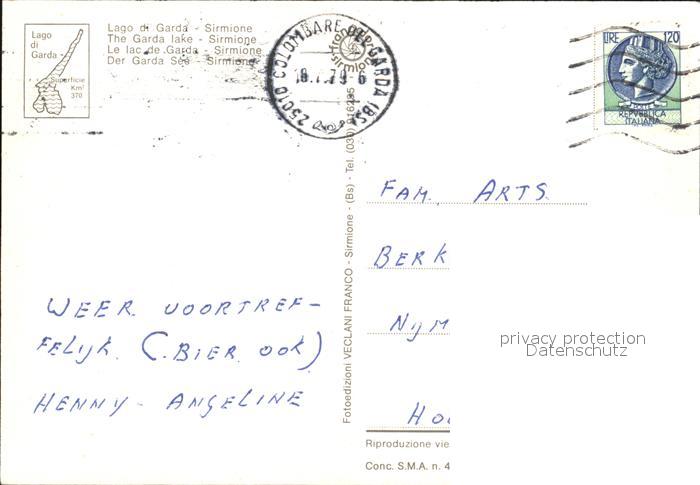 Lago
di
Garda
Superficie
Km²
370
Lago di Garda - Sirmione
The Garda lake - Sirmione
Le lac de Garda - Sirmione
Der Garda See - Sirmione
25010 COLOMBARE DEL GARDA (BS)
18.7.79-6
LIRE 120
REPVBBLICA
ITALIANA
Fotoedizioni VECLANI FRANCO - Sirmione - (Bs) - Tel. (030) 916295
FAM. ARTS.
BERK
NIJM
HO
WEER VOORTREF-
FELIJK. (BIER OOK)
HENNY - ANGELINE
privacy protection
Datenschutz
Riproduzione vie
Conc. S.M.A. n. 4